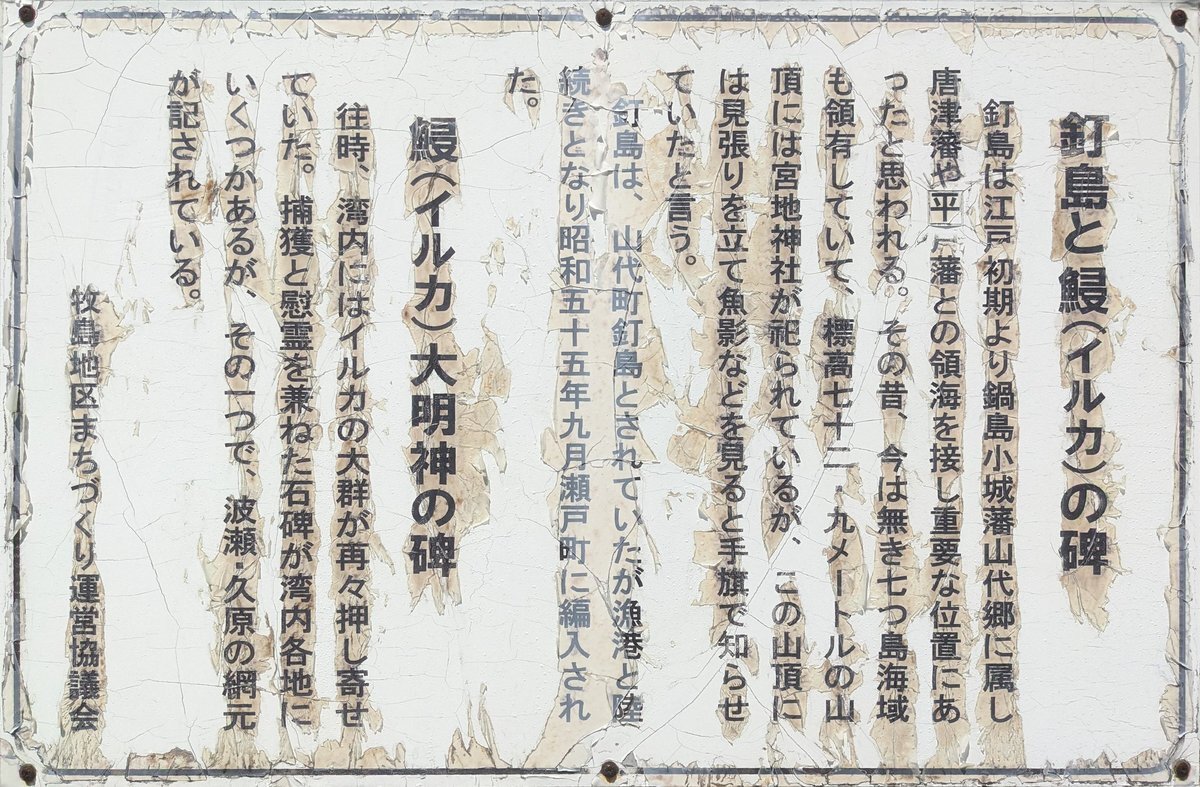 釘島と鯼(イルカ)の碑
釘島は江戸初期より鍋島小城藩山代郷に属し
唐津藩や平戸藩との領海を接し重要な位置にあ
ったと思われる。その昔、今は無き七つ島海域
も領有していて、標高七十二・九メートルの山
頂には宮地神社が祀られているが、この山頂に
は見張りを立て魚影などを見ると手旗で知らせ
ていたと言う。
釘島は、山代町釘島とされていたが漁港と陸
続きとなり昭和五十五年九月瀬戸町に編入され
た。
鯼(イルカ)大明神の碑
往時、湾内にはイルカの大群が再々押し寄せ
ていた。捕獲と慰霊を兼ねた石碑が湾内各地に
いくつかあるが、その一つで、波瀬・久原の網元
が記されている。
牧島地区まちづくり運営協議会